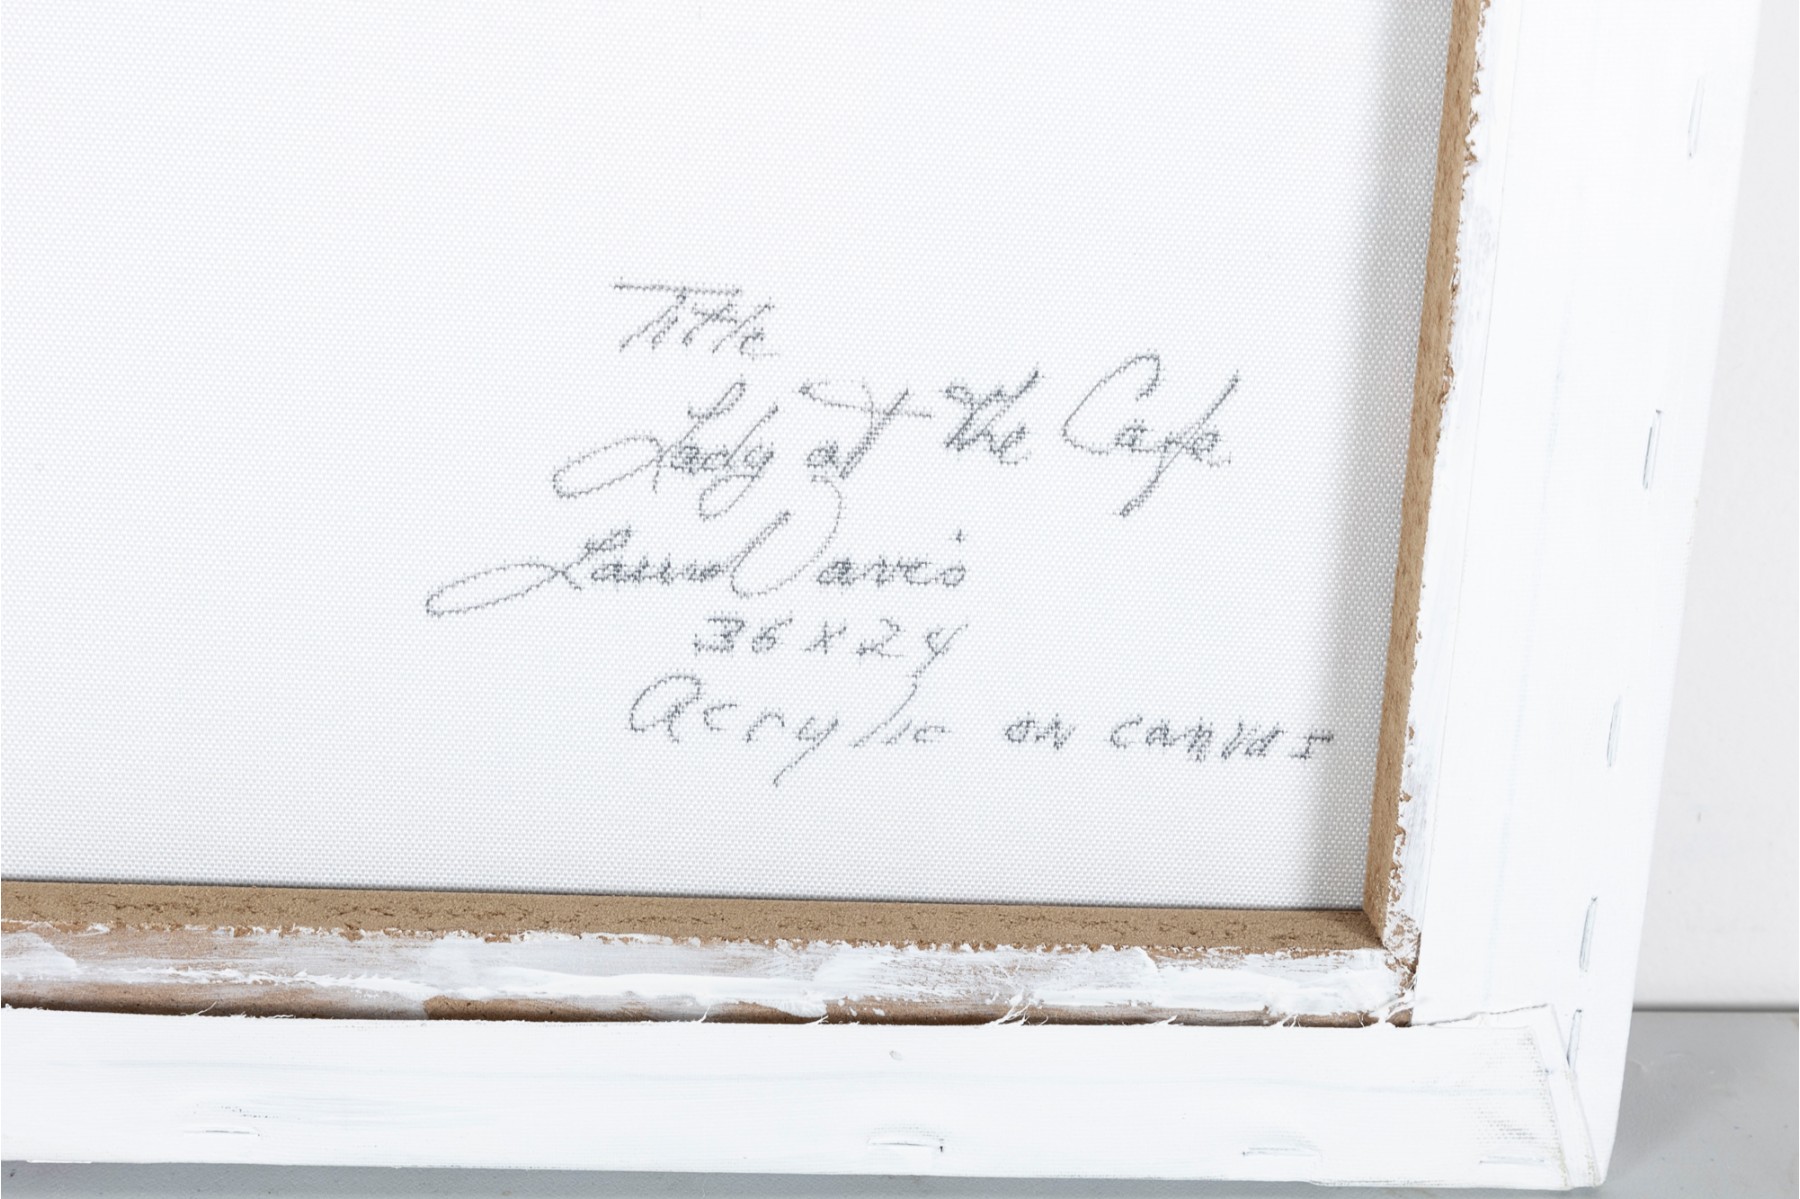 Title
Lady at The Cafe
Davis
36 x 24
Acrylic on canvas